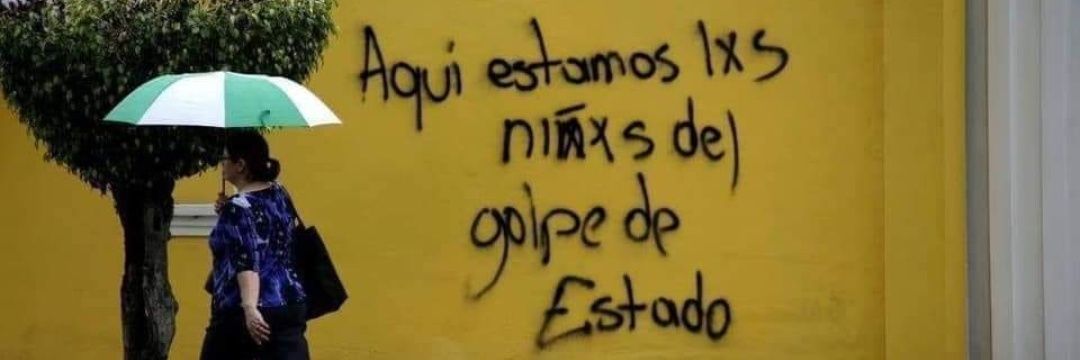 Aqui estamos lxs
niñxs del
golpe de
Estado